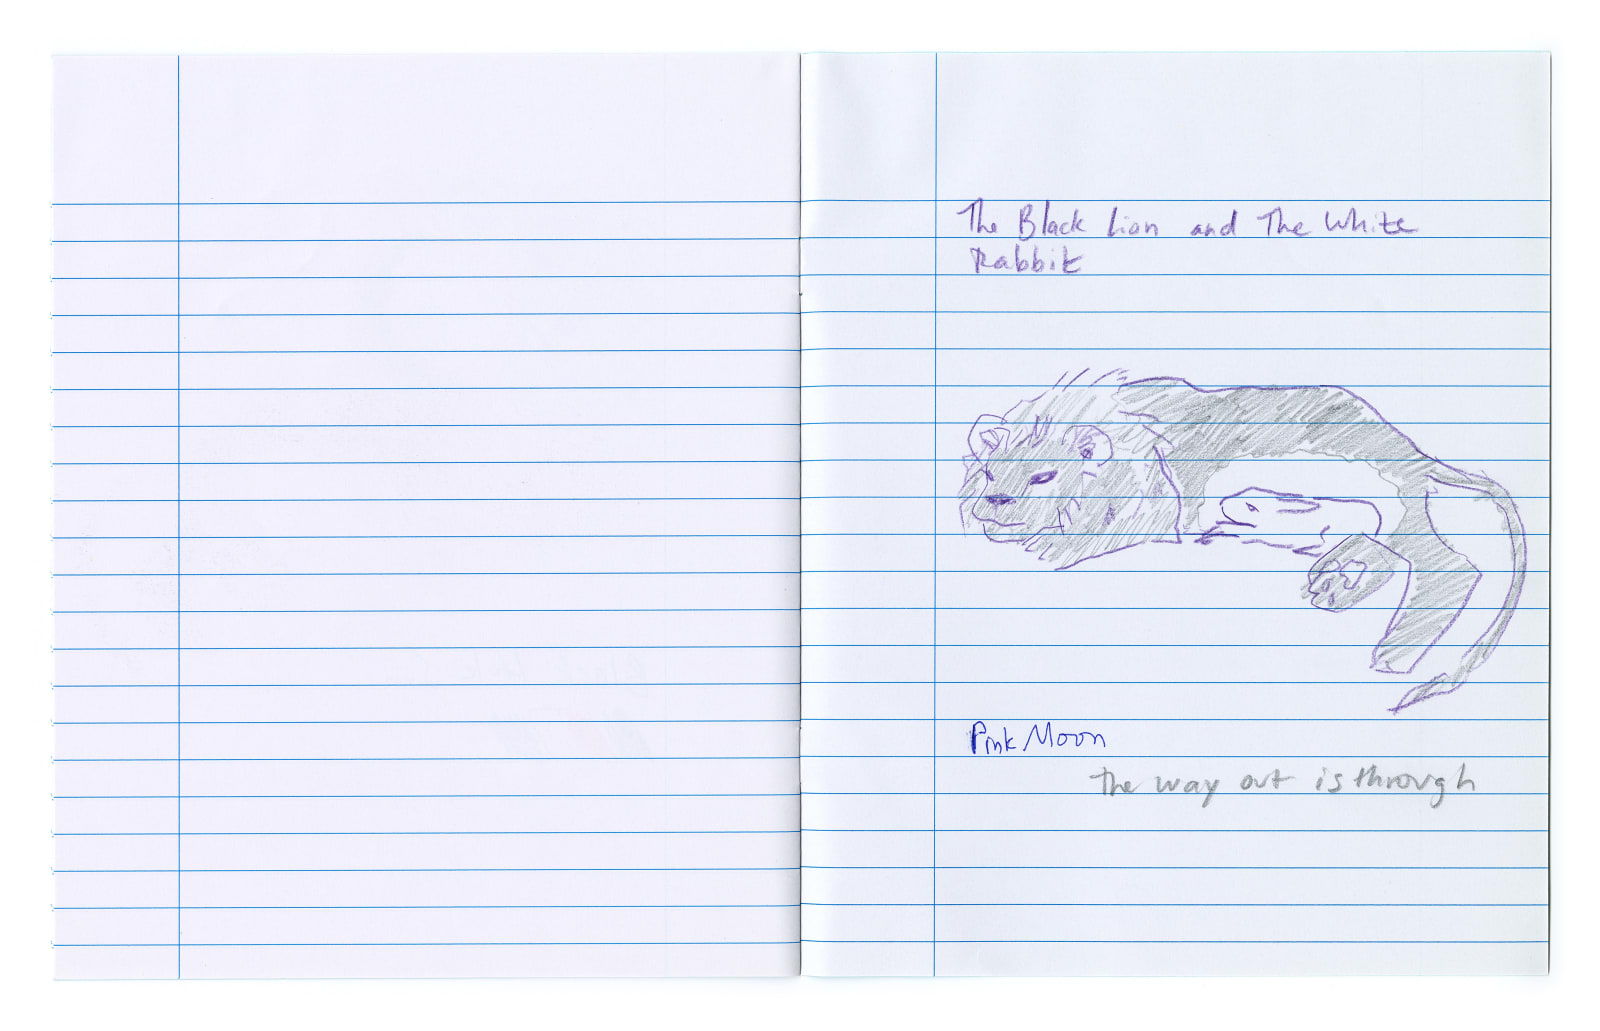 The Black Lion and The White
Rabbit
Pink Moon
The way out is through